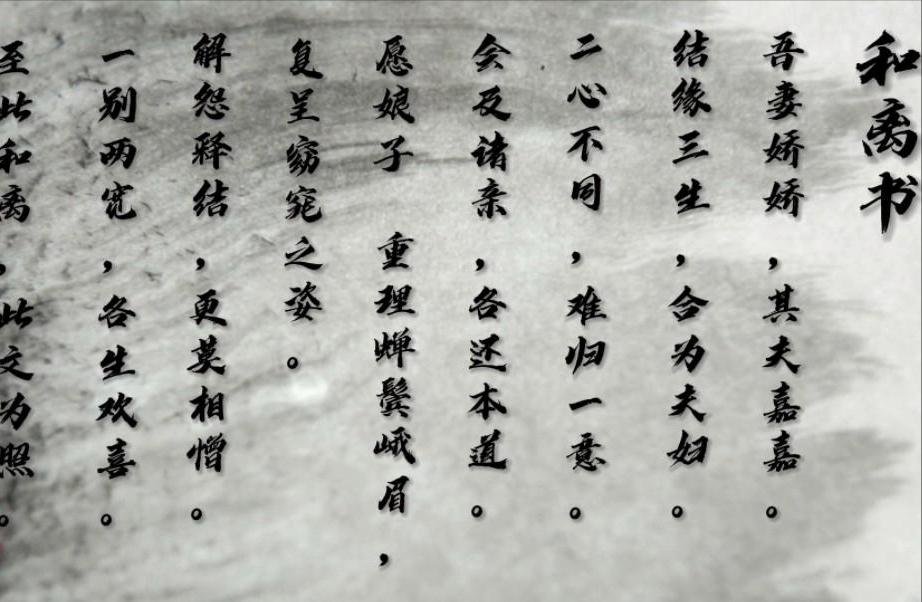 和离书
吾妻娇娇，其夫嘉嘉。
结缘三生，合为夫妇。
二心不同，难归一意。
会及诸亲，各还本道。
愿娘子 重理蝉鬓峨眉，
复呈窈窕之姿。
解怨释结，更莫相憎。
一别两宽，各生欢喜。
至此和离，此文为照。